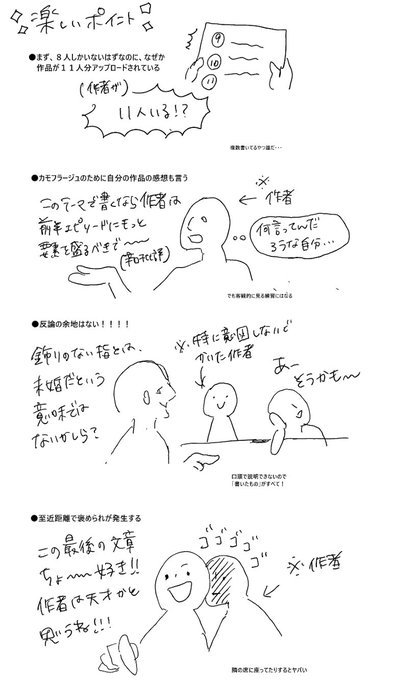 楽しいポイント
●まず、8人しかいないはずなのに、なぜか
作品が11人分アップロードされている
(作者が)
11人いる!?
9
10
11
複数書いてるやつ誰だ…
●カモフラージュのために自分の作品の感想も言う
このテーマで書くなら作者は
前半エピソードにもっと
要素を盛るべきで〜〜
※
← 作者
何言ってんだ
ろうな自分…
でも客観的に見る練習にはなる
●反論の余地はない!!!!
飾りのない指とは、
未婚だという
意味では
ないかしら?
※特に意図しないで
かいた作者
あー
そうかも〜
口頭で説明できないので
「書いたもの」がすべて!
●至近距離で褒められが発生する
この最後の文章
ちょ〜〜好き!!
作者は天才かと
思うね!!!
ゴゴゴゴゴ
※作者
隣の席に座ってたりするとヤバい